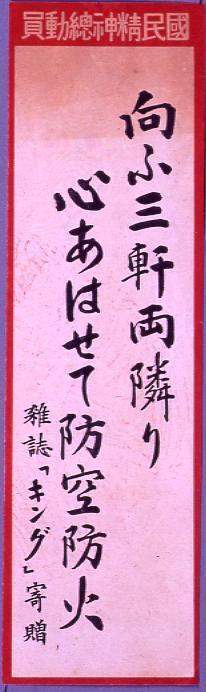 國民精神總動員
向ふ三軒両隣り
心あはせて防空防火
雑誌「キング」寄贈